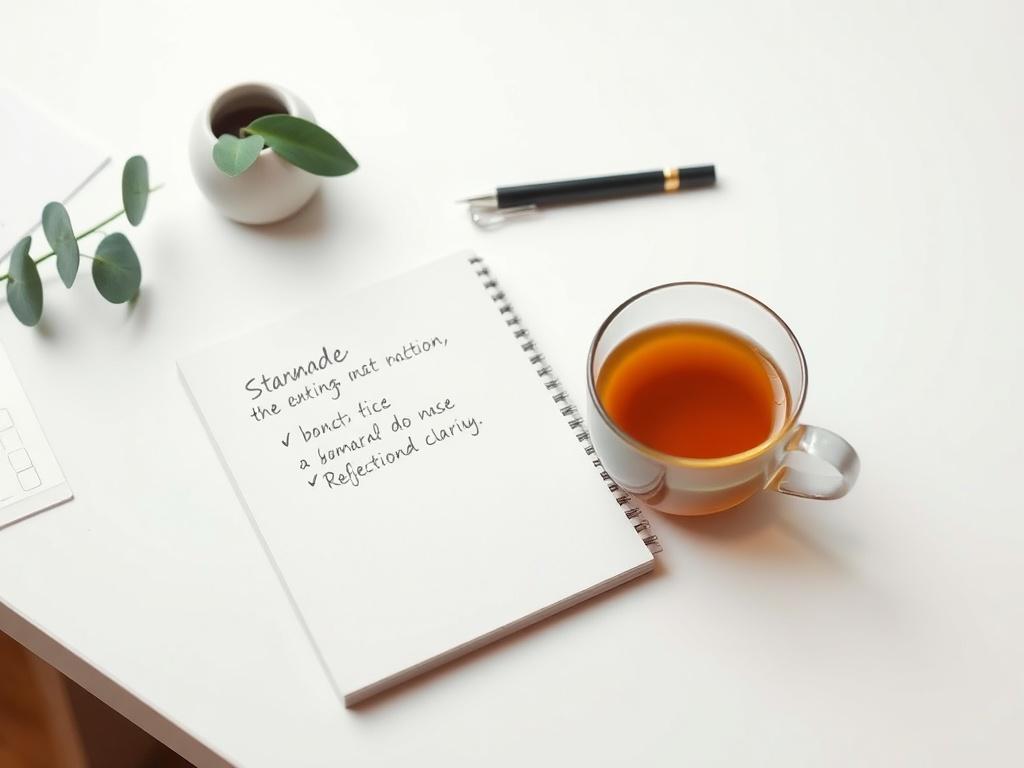 Stannade
the exting. mst mattion,
✓ bonct, tice
a bomaral do mse
✓ Refectiond clariny.